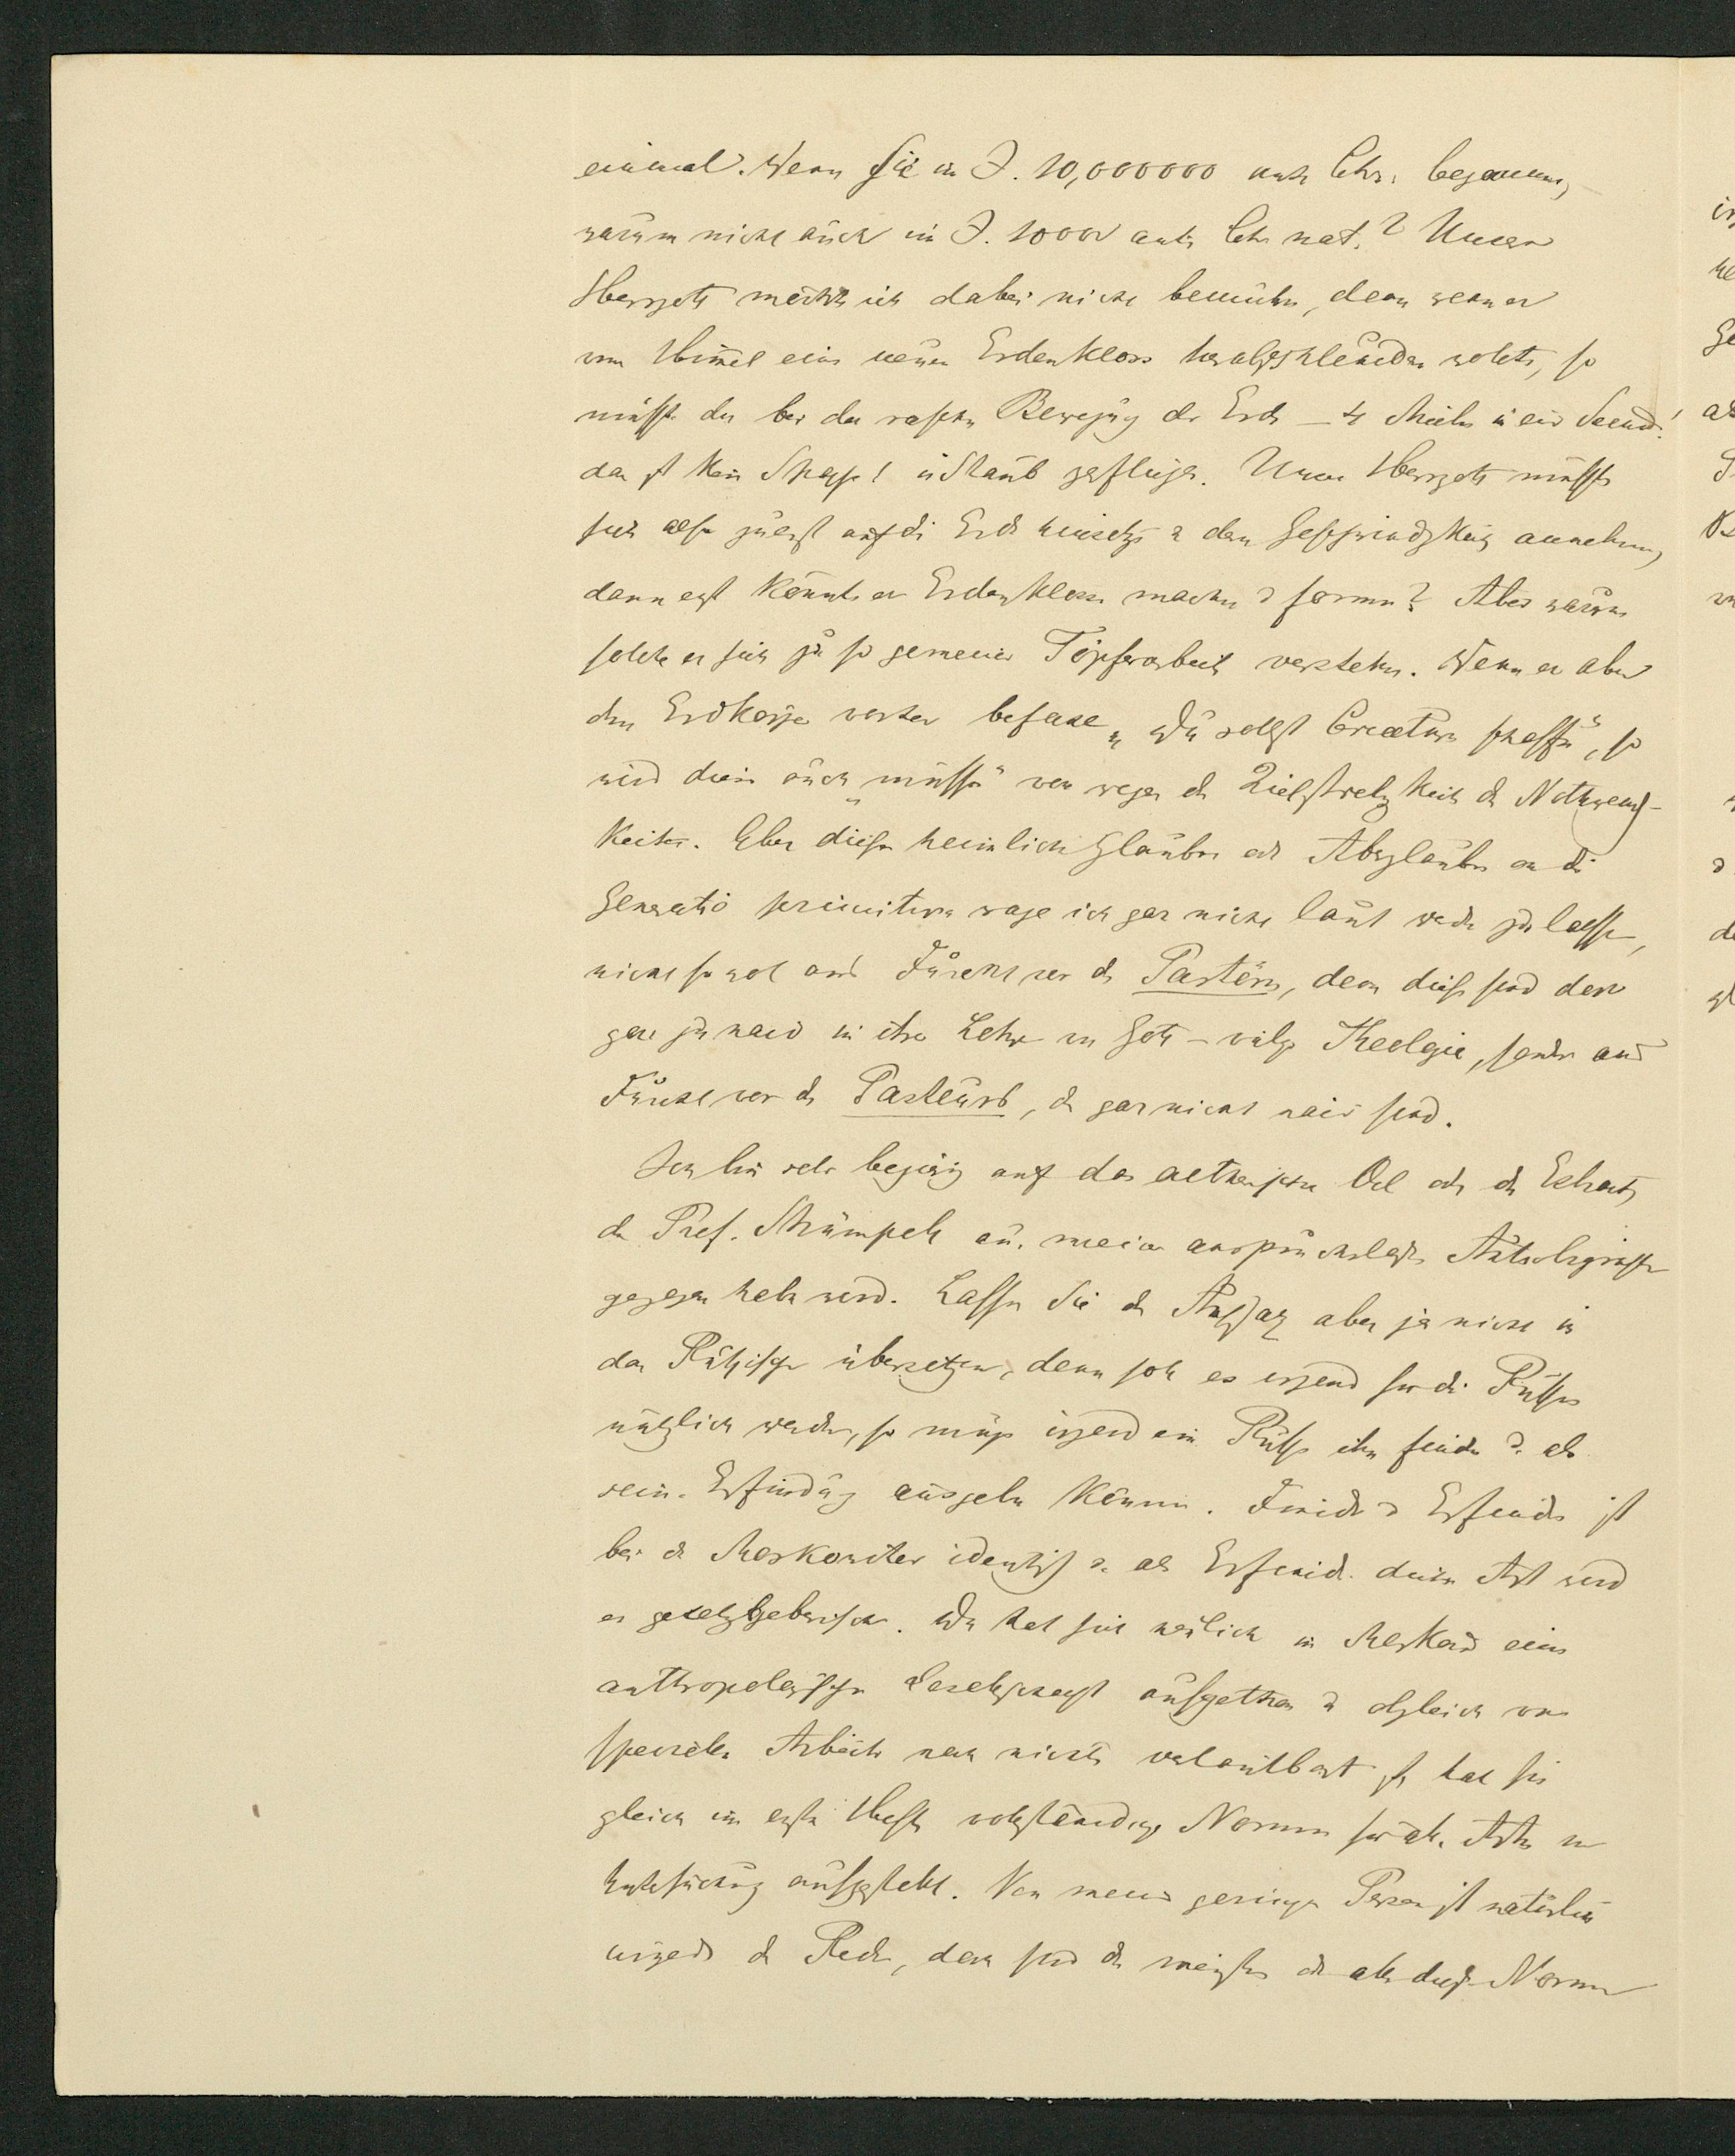 einmal. Wenn Sie im J. 10,000000 ante Chr. begonnen,
warum nicht auch im J. 10000 ante Chr. nat.? Unsern
Herrgott möchte ich dabei nicht bemühen, denn wenn er
vom Himmel einen neuen Erdenkloss herabschleudern wollte, so
müsste der bei der raschen Bewegung der Erde – 4 Meilen in einer Secunde!
in Staub zerfliegen. Unser Herrgott müsste
sich also zuerst auf die Erde hinsetzen u. deren Geschwindigkeit annehmen,
dann erst könnte er Erdenklosse machen u. formen? Aber warum
sollte er sich zu so gemeiner Töpferarbeit verstehen. Wenn er aber
dem Erdkörper vorher befahl „Du sollst Creaturen schaffen“, so
wird dieser auch „müssen“ von wegen der Zielstrebigkeit der Nothwendig-
keiten. Aber diesen heimlichen Glauben oder Aberglauben an die
Generatio primitiva wage ich gar nicht laut werden zu lassen,
nicht sowol aus Furcht vor den Pastören, denn diese sind doch
gar zu naiv in ihrer Lehre von Gott – vulgo Theologie, sondern aus
Furcht vor den Pasteurs, die gar nicht naiv sind.
Ich bin sehr begierig auf das aetherische Oel oder den Extract
der Prof. Strümpell aus meiner anspruchslosen
gezogen haben wird. Lassen Sie den Aufsatz aber ja nicht in
das Russische übersetzen, denn soll es irgend für die Russen
nützlich werden, so muss irgend ein Russe ihn finden u. als
seine Erfindung ausgeben können. Finden u. Erfinden ist
bei den Moskowiter identisch u. als Erfinder dieser Art wird
er gesetzgeberisch. Da hat sich neulich in Moskau eine
anthropologische Gesellschaft aufgethan u. obgleich von
speciellen Arbeiten noch nichts verlautbart ist, hat sie
gleich im ersten Hefte vollständige Normen für alle Arten von
Untersuchung aufgestellt. Von meiner geringen Person ist natürlich
nirgends die Rede, doch sind die meisten oder alle diese Normen